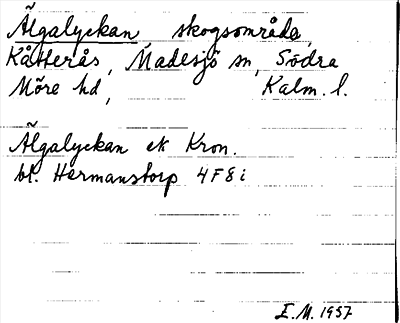 Älgalyckan skogsområde,
Kåtterås, Madesjö sn, Södra
Möre hd, Kalm. l.
Älgalyckan ek Kron.
bl. Hermanstorp 4F8i
E.M. 1957